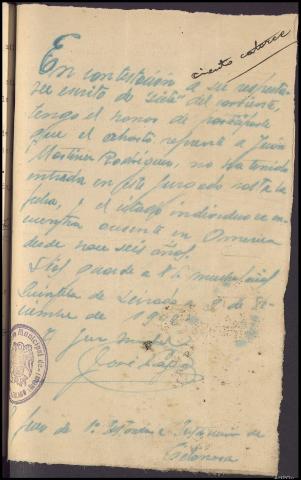 ciento catorce
En contestación a su respetable
escrito de siete del corriente,
tengo el honor de
que el exhorto referente a Juan
Martinez Rodriguez, no ha tenido
entrada en este Juzgado hasta la
fecha, y el citado individuo se en
cuentra ausente en America
desde hace seis años.
Dios guarde a V. muchos años
Quintela de Leirado a 9 de
de 19
Juez
José
Juez de 1ª Instancia e Instrucción de
Celanova